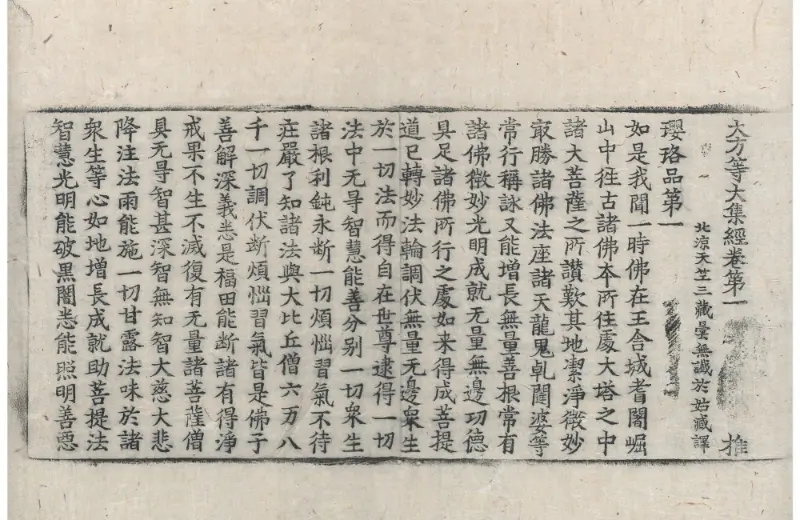 大方等大集經卷第一 推
北涼天竺三藏曇無讖於姑臧譯
瓔珞品第一
如是我聞一時佛在王舍城耆闍崛
山中徃古諸佛夲所住處大塔之中
諸大菩薩之所讃歎其地潔淨微妙
㝡勝諸佛法座諸天龍鬼乹闥婆等
常行稱詠又能增長無量善根常有
諸佛微妙光明成就无量無邊功德
具足諸佛所行之處如来得成菩提
道已轉妙法輪調伏無量无邊衆生
於一切法而得自在世尊逮得一切
法中无㝵智慧能善分别一切衆生
諸根利鈍永断一切煩惱習氣不待
莊嚴了知諸法與大比丘僧六万八
千一切調伏断煩惱習氣皆是佛子
善解深義悉是福田能断諸有得淨
戒果不生不滅復有无量諸菩薩僧
具无㝵智甚深智無知智大慈大悲
降注法雨能施一切甘露法味於諸
衆生等心如地增長成就助菩提法
智慧光明能破黒闇悉能照明善惡